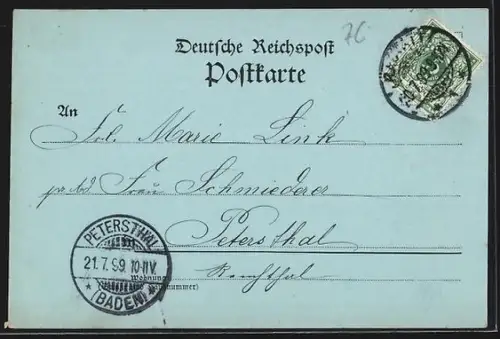 76
Deutsche Reichspost
Postkarte
An
Frl. Marie Link
pr. Ad Frau Schmiederer
Petersthal
Renchthal
PETERSTHAL
21.7.99. 10-11V.
* (BADEN) *
Wohnung